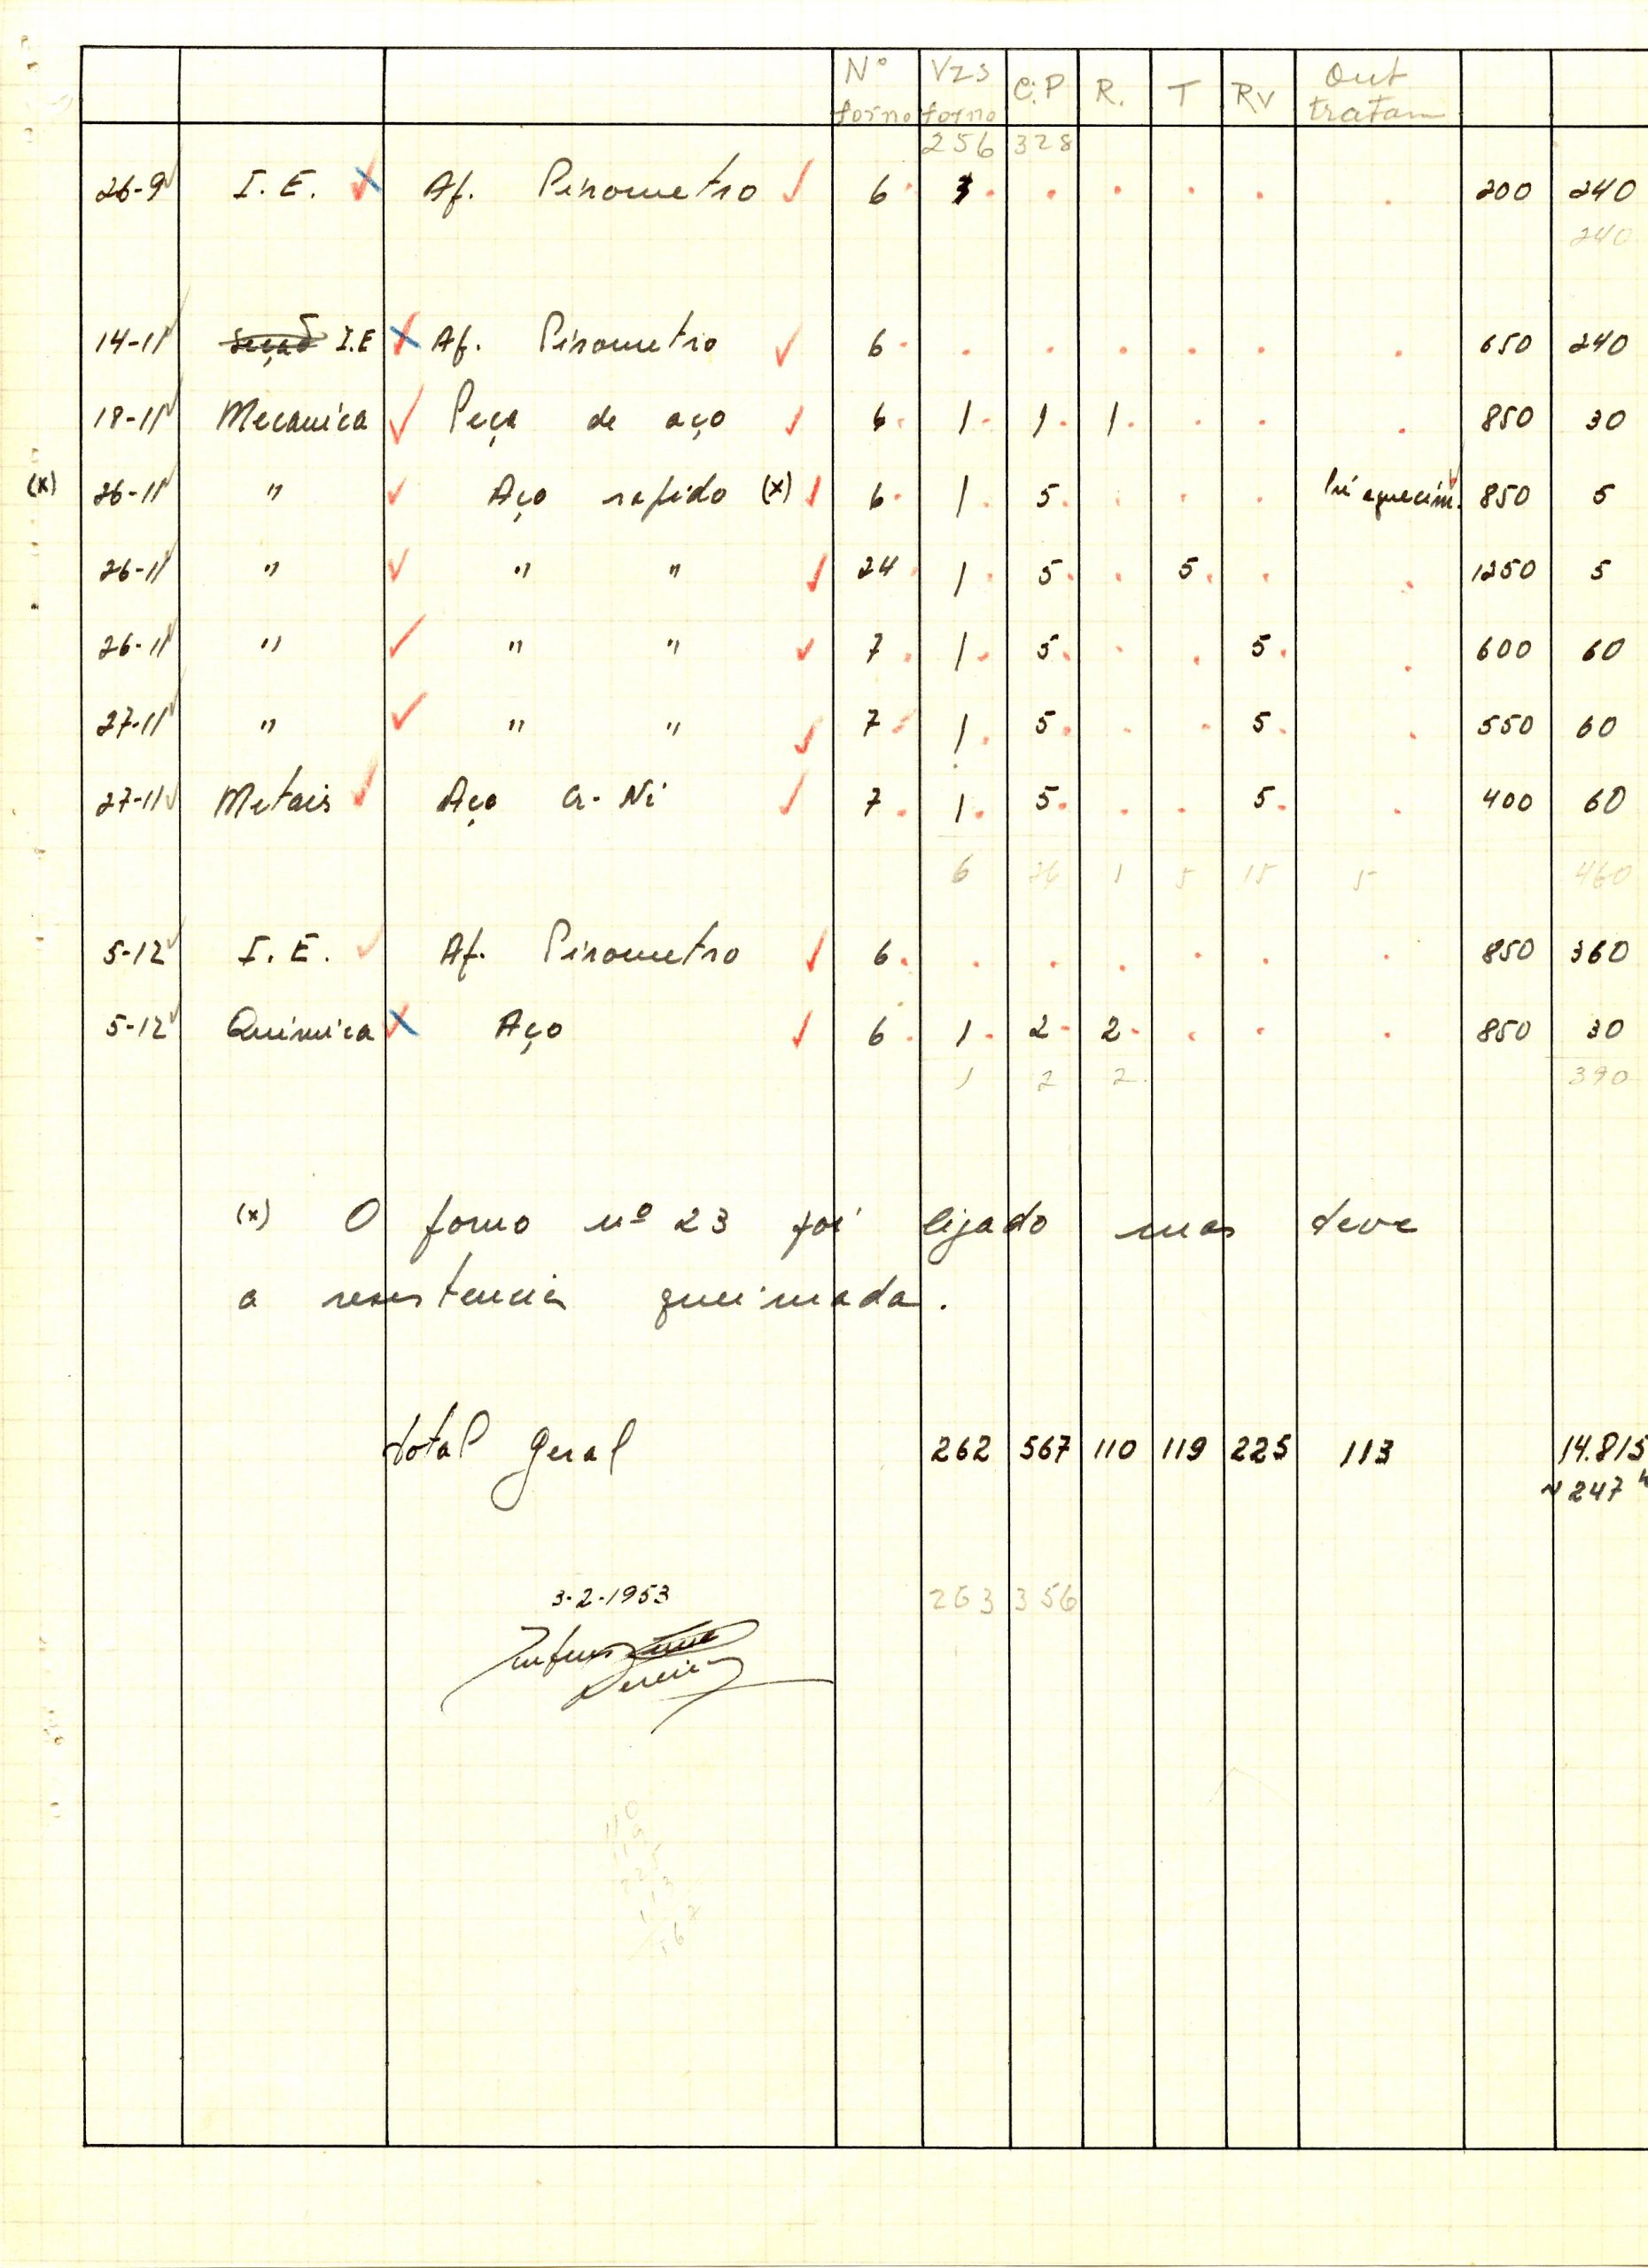 Nº forno Vzs forno C.P R. T Rv Out tratam
256 328
26-9 I.E. Af. Pirometro 6 200 240
240
14-11 Seção I.E Af. Pirometro 6 650 240
18-11 Mecanica Peça de aço 6 1 1 1 850 30
(x) 26-11 " Aço rapido (x) 6 1 5 Pré aquecim. 850 5
26-11 " " " 24 1 5 5 1250 5
26-11 " " " 7 1 5 5 600 60
27-11 " " " 7 1 5 5 550 60
27-11 Metais Aço Cr-Ni 7 1 5 5 400 60
6 26 1 5 15 5 460
5-12 I.E. Af. Pirometro 6 850 360
5-12 Quimica Aço 6 1 2 2 850 30
1 2 2 390
(x) O forno nº 23 foi ligado mas teve
a resistencia queimada.
total geral 262 567 110 119 225 113 14.815
~ 247 h
3-2-1953 263 356
110
119
225
113
567